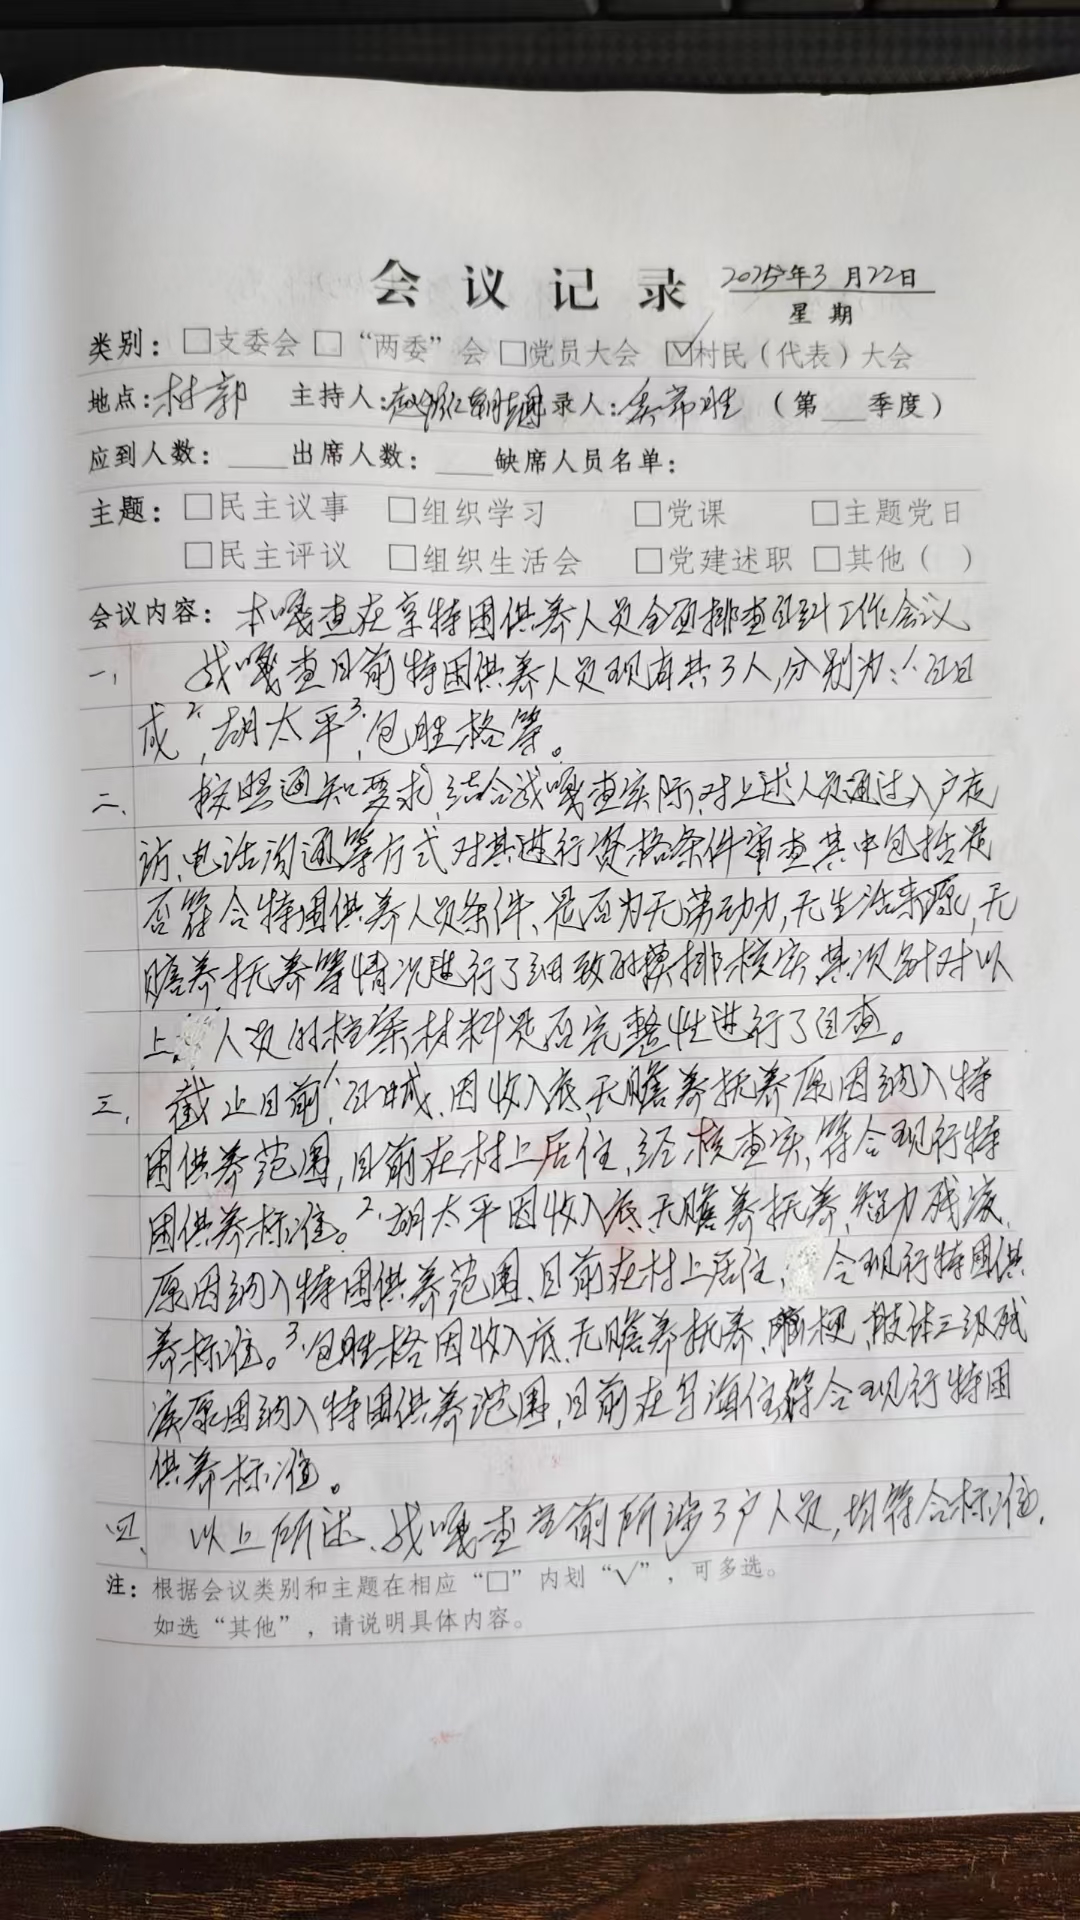 会议记录 2025年3月22日
星期
类别：□支委会 □“两委”会 □党员大会 ☑村民（代表）大会
地点：村部 主持人： 录人： （第 季度）
应到人数： 出席人数： 缺席人员名单：
主题：□民主议事 □组织学习 □党课 □主题党日
□民主评议 □组织生活会 □党建述职 □其他（ ）
会议内容：本嘎查在享特困供养人员全面排查 工作会议
一、 我嘎查目前特困供养人员现有共3人,分别为：1、 日
成 2、胡太平 3、包胜格等。
二、 按照通知要求,结合我嘎查实际,对上述人员通过入户走
访、电话沟通等方式对其进行资格条件审查其中包括是
否符合特困供养人员条件、是否为无劳动力,无生活来源,无
赡养抚养等情况进行了细致的摸排核实,其次针对以
上 人员的档案材料是否完整性进行了自查。
三、 截止目前,1、 因收入底,无赡养抚养原因纳入特
困供养范围,目前在村上居住,经核查实,符合现行特
困供养标准。2、胡太平因收入底,无赡养抚养,智力残疾、
原因纳入特困供养范围、目前在村上居住, 合现行特困供
养标准。3、包胜格因收入底、无赡养抚养、脑梗,肢体三级残
疾原因纳入特困供养范围,目前在乌海住,符合现行特困
供养标准。
四、 以上所述、我嘎查 前所 3户人员,均符合标准.
注：根据会议类别和主题在相应“□”内划“√”，可多选。
如选“其他”，请说明具体内容。